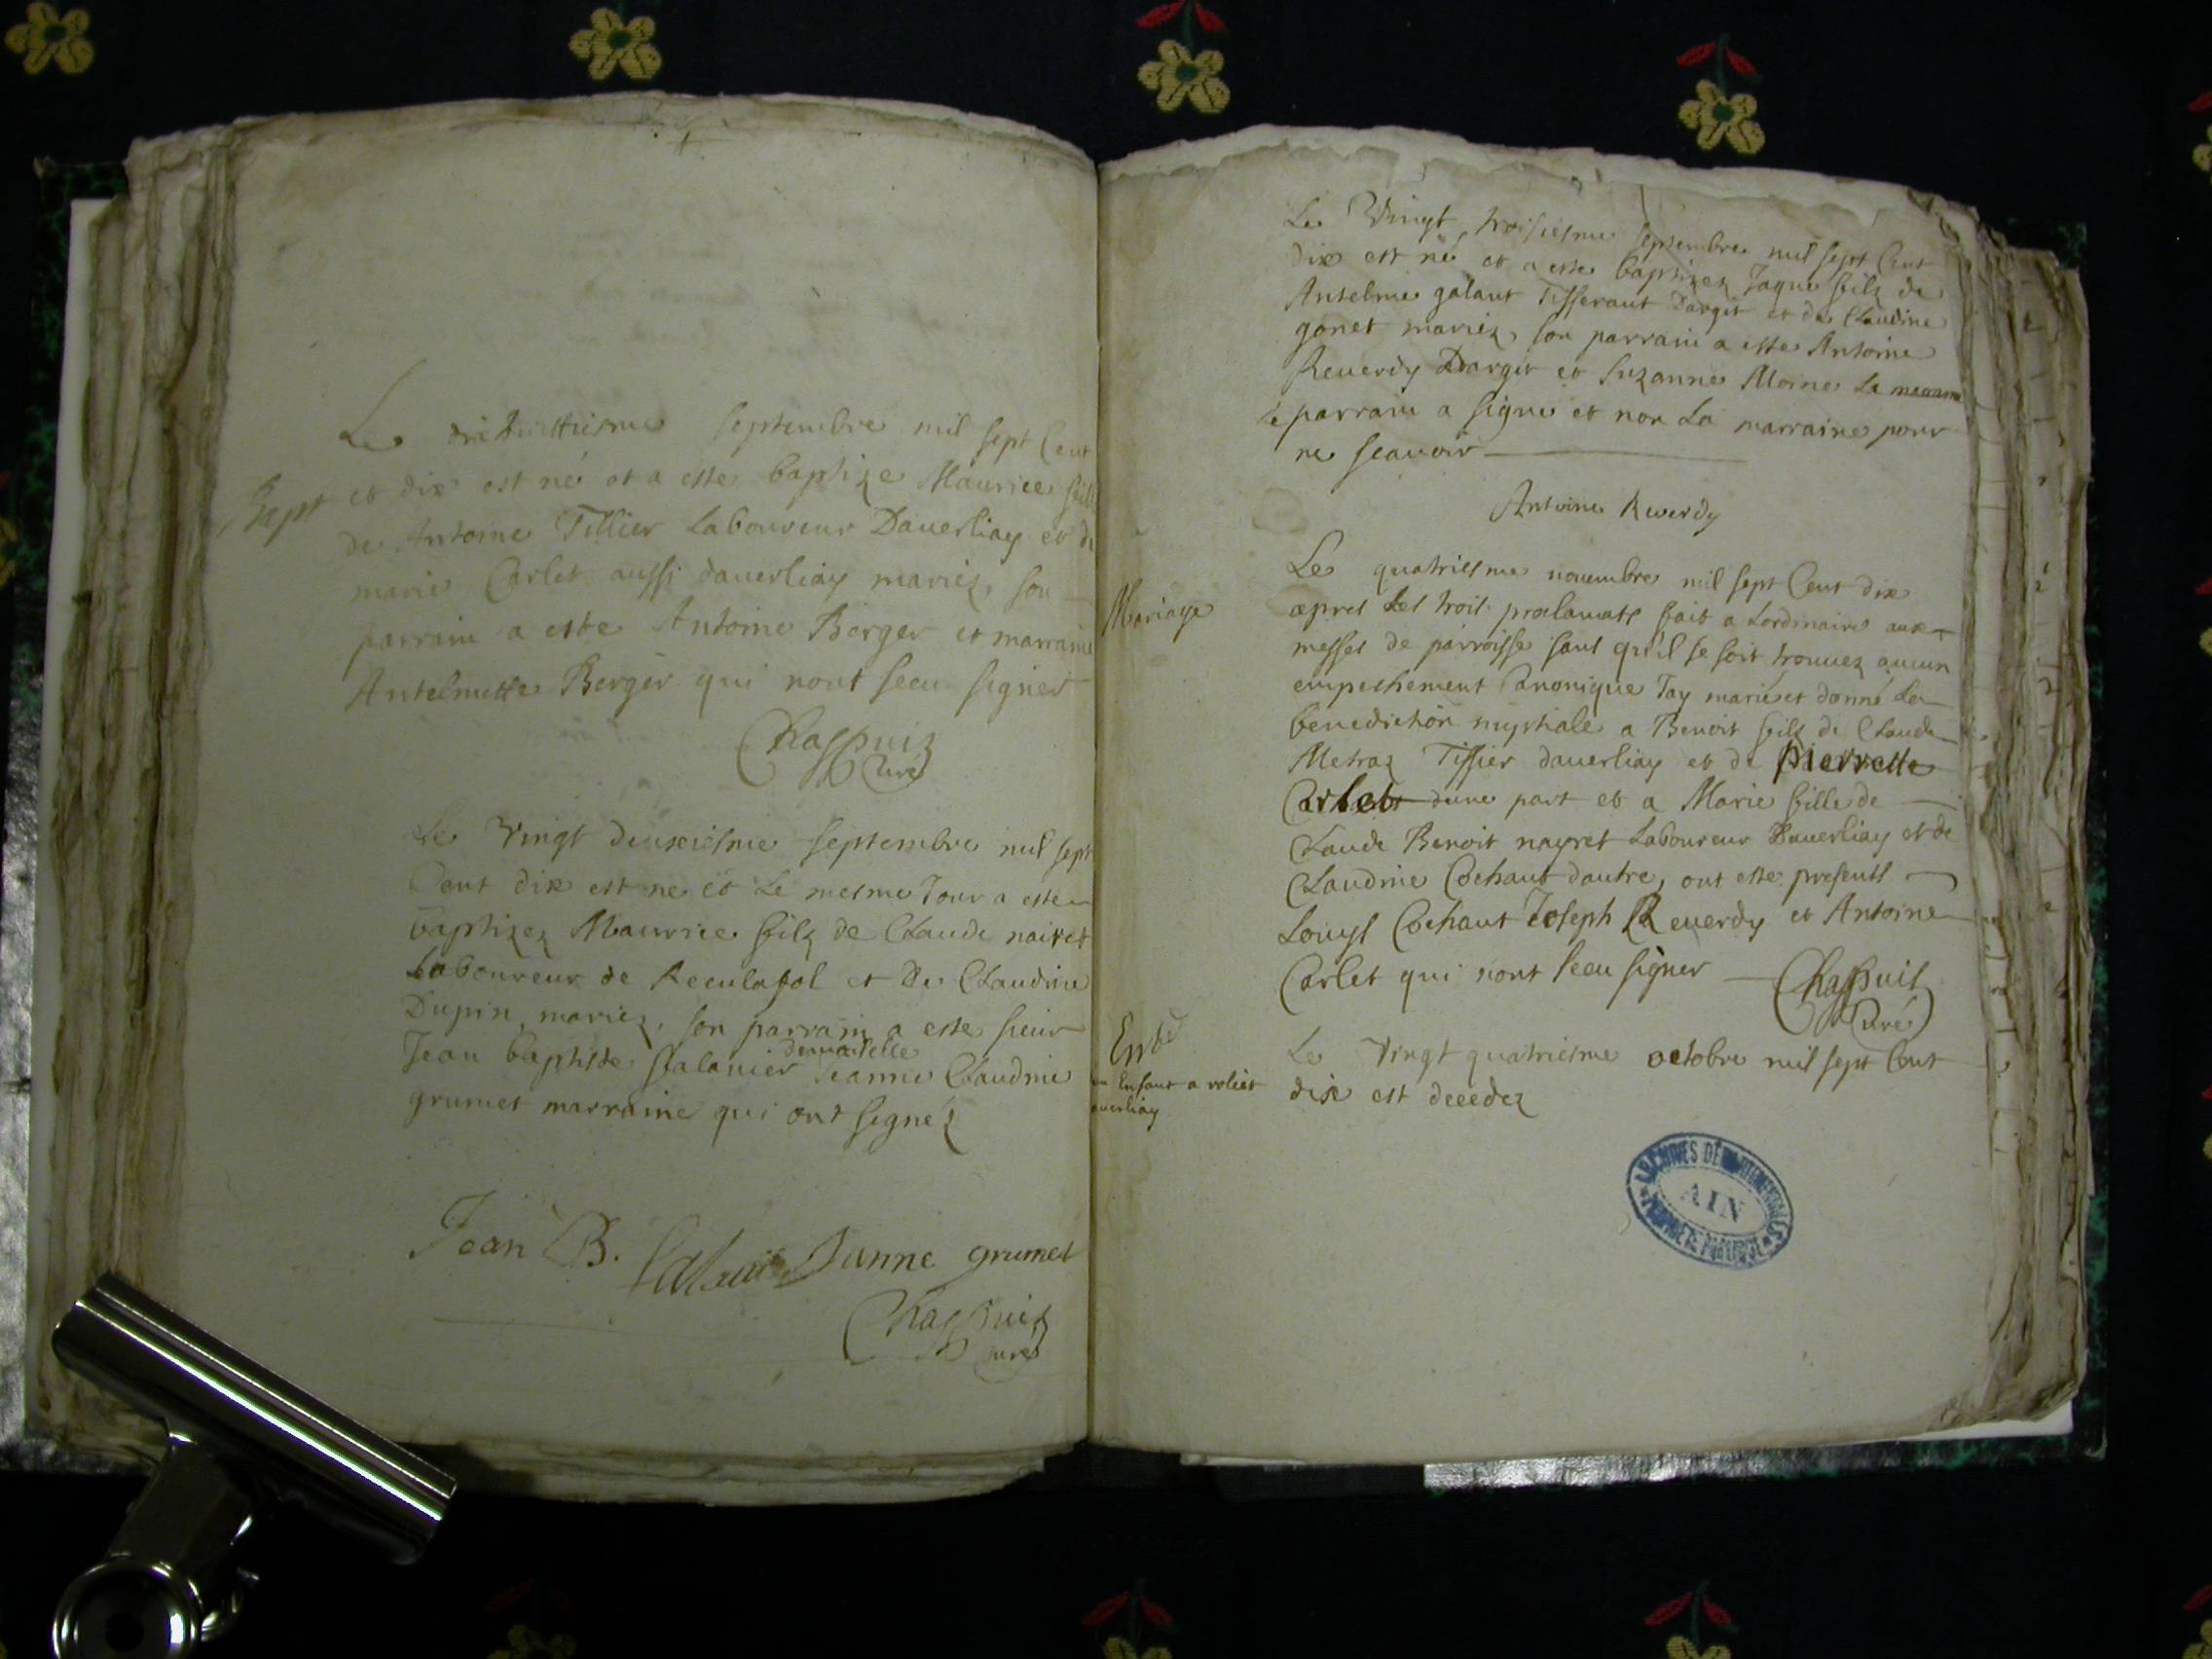 Le dixhuittiesme septembre mil sept Cent
Bapt
et dix est né et a esté baptize Maurice fill
de Antoine Tillier Laboureur Dauerliay et de
marie Carlet aussi dauerliay mariéz, son
parrain a esté Antoine Berger et marraine
Antelmette Berger qui nont sceu signer
Chappuiz
Curé
Le Vingt deuxiesme septembre mil sept
Cent dix est né et Le mesme Jour a esté
baptizez Maurice filz de Claude nairet
Laboureur de Reculafol et De Claudine
Dupin, mariez, son parrain a esté sieur
demoiselle
Jean baptiste falavier Jeanne Claudine
grumet marraine qui ont signéz
Jean B. falavier Janne grumet
Chappuiz
curé
Le Vingt troisiesme septembre mil sept Cent
dix est né et a esté baptizez Jaque filz de
Antelme galant Tisserant Dargit et de Claudine
gonet mariéz, son parrain a esté Antoine
Reuerdy Dargit et Suzanne Moine La
le parrain a signé et non La marraine pour
ne scauoir
Antoine Reverdy
Mariage
Le quatriesme nouembre mil sept Cent dix
apres Les trois proclamats fait a Lordinaire aux
messes de parroisse sans qu'il se soit trouuez aucun
empeschement Canonique Jay marié et donné La
benediction nuptiale a Benoit filz de Claude
Metraz Tissier dauerliay et de pierrette
Carlet dune part et a Marie fille de
Claude Benoit nayret Laboureur Dauerliay et de
Claudine Cochant dautre, ont esté presents
Louys Cochant Joseph Reuerdy et Antoine
Carlet qui nont sceu signer Chappuis
Curé
un Enfant a voliet
auerliay
Le Vingt quatriesme octobre mil sept Cent
dix est decedez
ARCHIVES DÉPARTEMENTALES
AIN